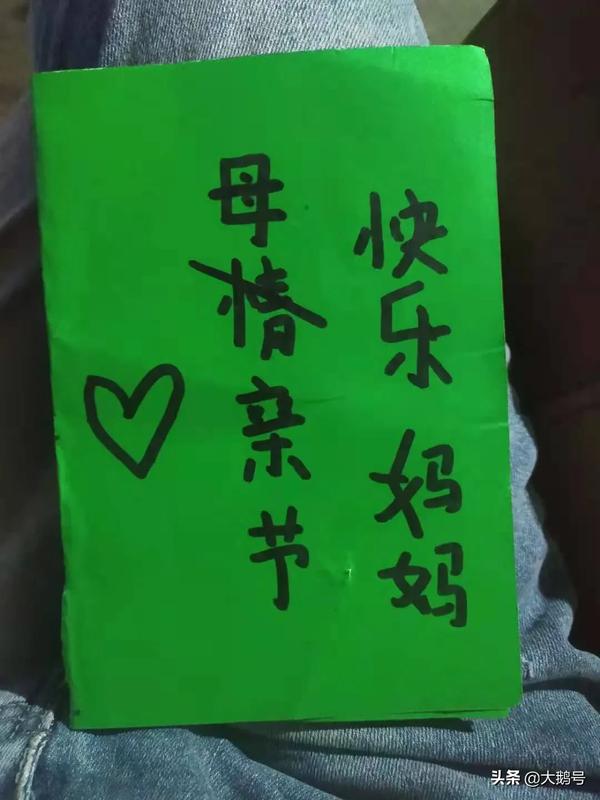 母情亲节
快乐妈妈
头条 @大鹅号